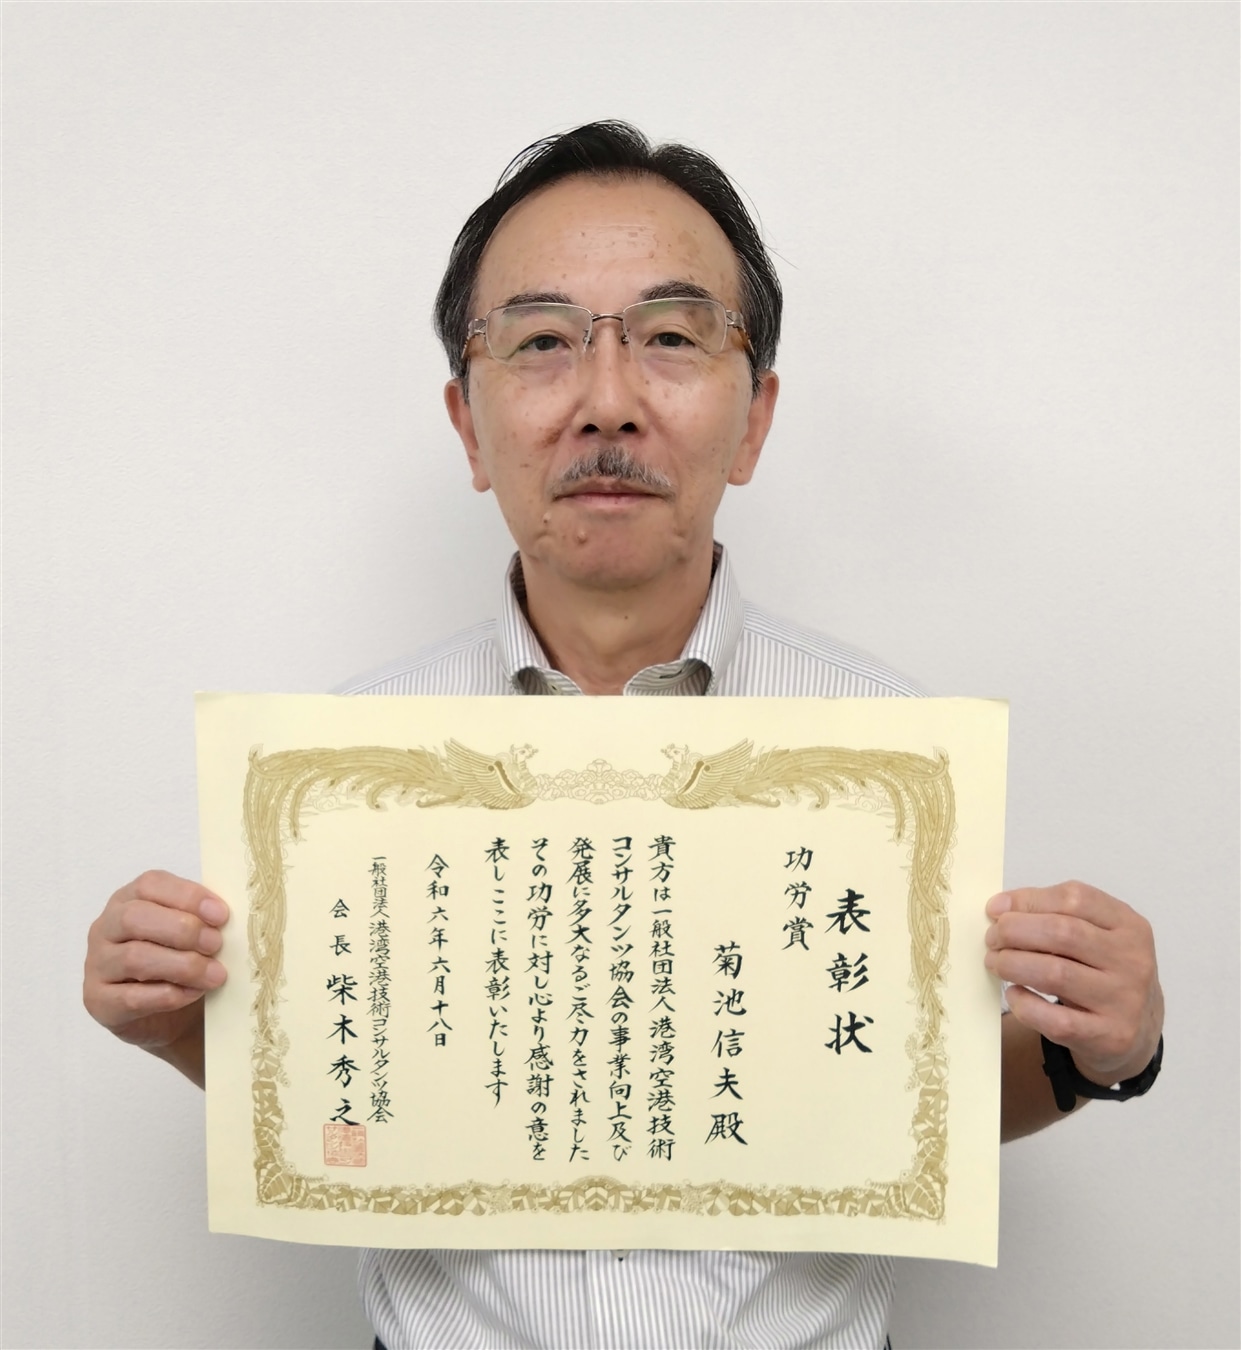 表彰状
功労賞
菊池信夫殿
貴方は一般社団法人港湾空港技術
コンサルタンツ協会の事業向上及び
発展に多大なるご尽力をされました
その功労に対し心より感謝の意を
表しここに表彰いたします
令和六年六月十八日
一般社団法人港湾空港技術コンサルタンツ協会
会長柴木秀之